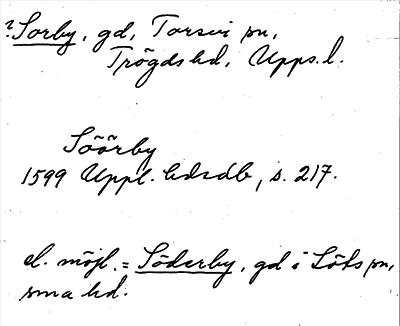 ? Sorby, gd, Torsvi sn,
Trögds hd, Upps. l.
Söörby
1599 Uppl. hdsdb, s. 217.
el. möjl. = Söderby, gd i Löts sn,
sma hd.